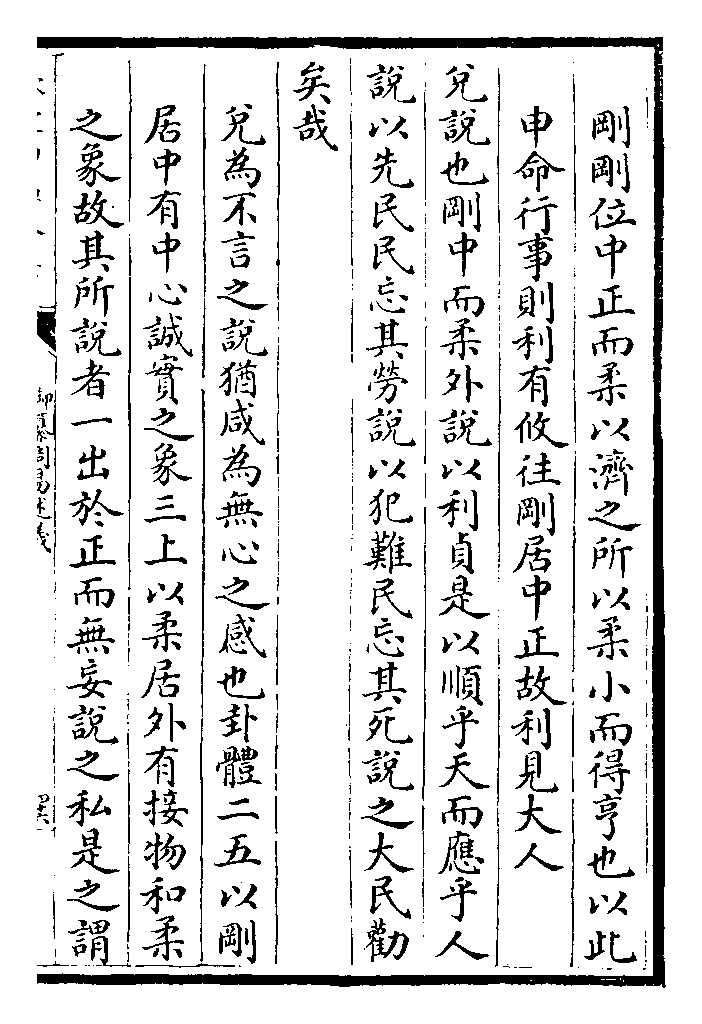 剛剛位中正而柔以濟之所以柔小而得亨也以此
申命行事則利有攸往剛居中正故利見大人
兌說也剛中而柔外說以利貞是以順乎天而應乎人
說以先民民忘其勞說以犯難民忘其死說之大民勸
矣哉
兌為不言之說猶咸為無心之感也卦體二五以剛
居中有中心誠實之象三上以柔居外有接物和柔
之象故其所說者一出於正而無妄說之私是之謂
御纂周易述義